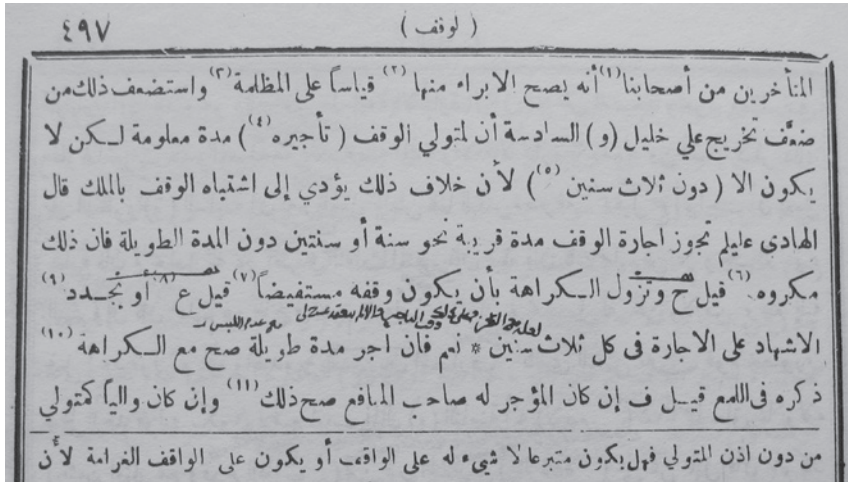 ٤٩٧ ( لوقف )
المتأخرين من أصحابنا (١) أنه يصح الابراء منها (٢) قياساً على المظلمة (٣) واستضعف ذلك من
ضعَّف تخريج علي خليل (و) السادسة أن لمتولي الوقف ( تأجيره (٤) ) مدة معلومة لـكن لا
يكون الا ( دون ثلاث سنين (٥) ) لأن خلاف ذلك يؤدي إلى اشتباه الوقف بالملك قال
الهادي عليلم تجوز اجارة الوقف مدة قريبة نحو سنة أو سنتين دون المدة الطويلة فان ذلك
مكروه (٦) قيل ح وتزول الـكراهة بأن يكون وقفه مستفيضاً (٧) قيل ع (٨) أو بجـدد (٩)
الاشهاد على الاجارة فى كل ثلاث سنين * نعم فان أجر مدة طويلة صح مع الـكراهة (١٠)
ذكره فى اللمع قيـل ف إن كان المؤجر له صاحب المنافع صح ذلك (١١) وإن كان والياً كمتولي
من دون اذن المتولي فهل يكون متبرعا لا شيء له على الواقف أو يكون على الواقف الغرامة لأن